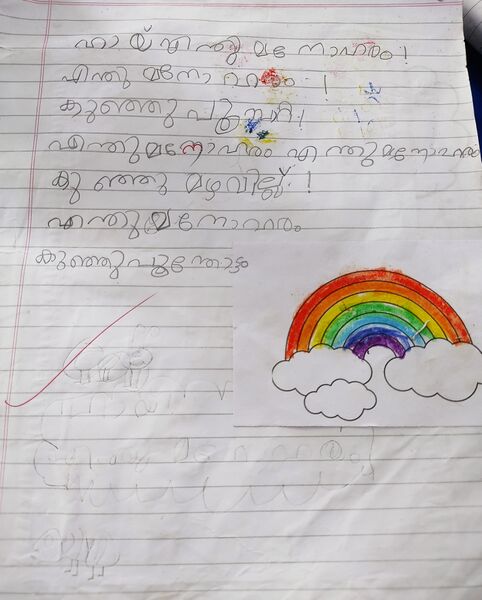 ഹായ് എന്തു മനോഹരം!
എന്തു മനോഹരം !
കുഞ്ഞു പൂമ്പാറ്റ!
എന്തു മനോഹരം എന്തു മനോഹരം
കുഞ്ഞു മഴവില്ല് !
എന്തു മനോഹരം
കുഞ്ഞു പൂന്തോട്ടം